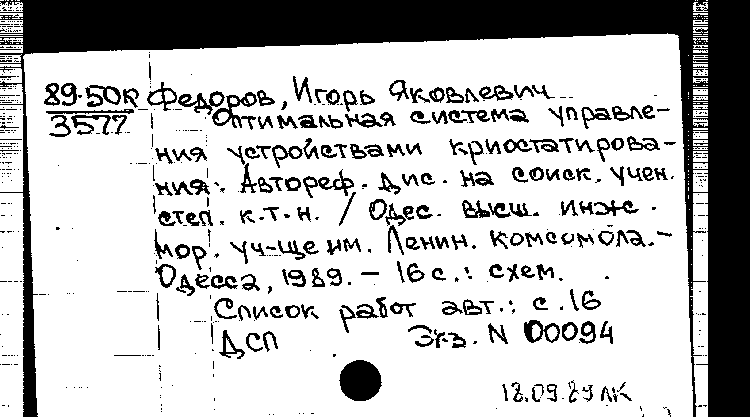 89-50R Федоров, Игорь Яковлевич
3577 Оптимальная система управле-
ния устройствами криостатирова-
ния: Автореф. дис. на соиск. учен.
степ. к.т.н. / Одес. высш. инж.
мор. уч-ще им. Ленин. комсомола.-
Одесса, 1989. - 16 с.: схем.
Список работ авт.: с. 16
ДСП Экз. N 00094
18.09.89 ЛК